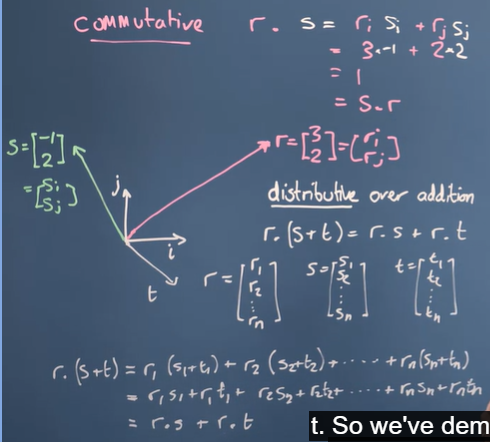 commutative
r. s = ri si + rj sj
= 3·-1 + 2·2
= 1
= s·r
s=[-1 2]
=[si sj]
r=[3 2]=[ri rj]
j
i
t
distributive over addition
r.(s+t)= r.s + r.t
r=[r1 r2 ⋮ rn] s=[s1 s2 ⋮ sn] t=[t1 t2 ⋮ tn]
r.(s+t) = r1 (s1+t1) + r2 (s2+t2)+ ····· +rn(sn+tn)
= r1s1+r1t1+ r2s2+r2t2+ ····· +rnsn+rntn
= r·s + r·t
t. So we've dem